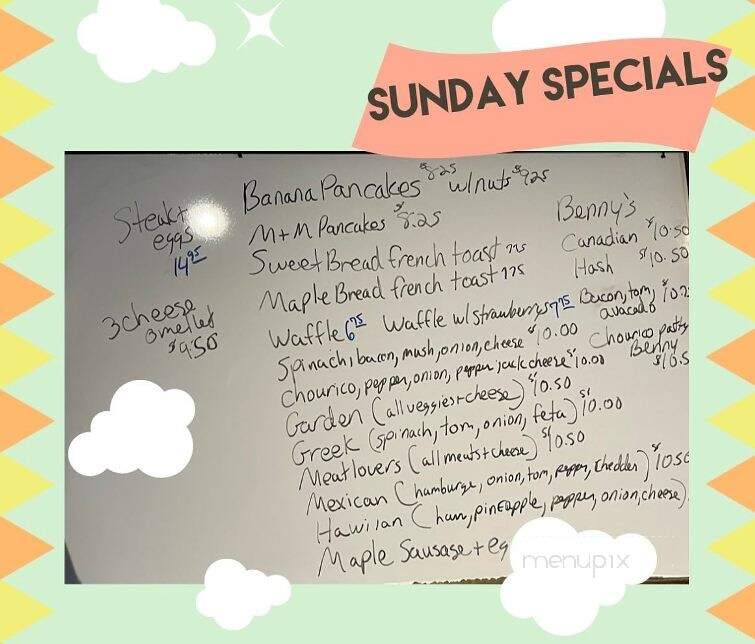 SUNDAY SPECIALS
Banana Pancakes $8.25 w/nuts $9.25
M+M Pancakes $8.25
Sweet Bread french toast 775
Maple Bread french toast 775
Waffle 6.75 Waffle w/ strawberrys 7.75
Spinach, bacon, mush, onion, cheese $10.00
chourico, pepper, onion, pepper jack cheese $10.00
Garden (all veggies + cheese) $10.50
Greek (spinach, tom, onion, feta) $10.00
Meatlovers (all meats + cheese) $10.50
Mexican (hamburge, onion, tom, pepper, chedder) $10.50
Hawiian (ham, pineapple, pepper, onion, cheese)
Maple Sausage + eg
Steak +
eggs
14.95
3 cheese
omellet
$9.50
Benny's
Canadian $10.50
Hash $10.50
Bacon, tom, $10.7
avacado
Chourico patty
Benny
$10.5
menupix